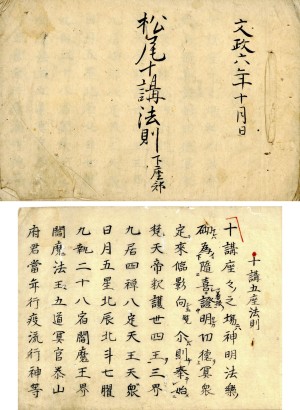 文政六年十月日
松尾十講法則
下座
十講五座法則
十講座々之場神明法樂
砌為隨喜證明功德冥衆
定來臨影向 尒則奉始
梵天帝釈護世四王三界
九居四禅八定天王天衆
日月五星北辰北斗七曜
九執二十八宿閻魔王界
閻魔法王五道冥官泰山
府君當年行疫流行神等